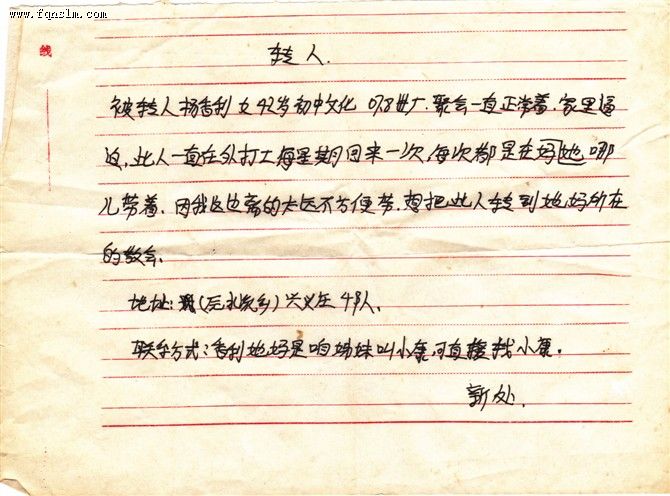 www.fqnslm.com
线
转人.
被转人杨香利女42岁初中文化 07.8世厂.聚会一直正常着.家里逼
迫,此人一直在外打工每星期回来一次,每次都是在妈她哪
儿带着.因我区边离的太远不方便带.想把此人转到她妈所在
的教会.
地址:(瓦水流乡)兴义庄48人.
联系方式:香利她妈是咱姊妹叫小奎可直接找小奎.
新处.